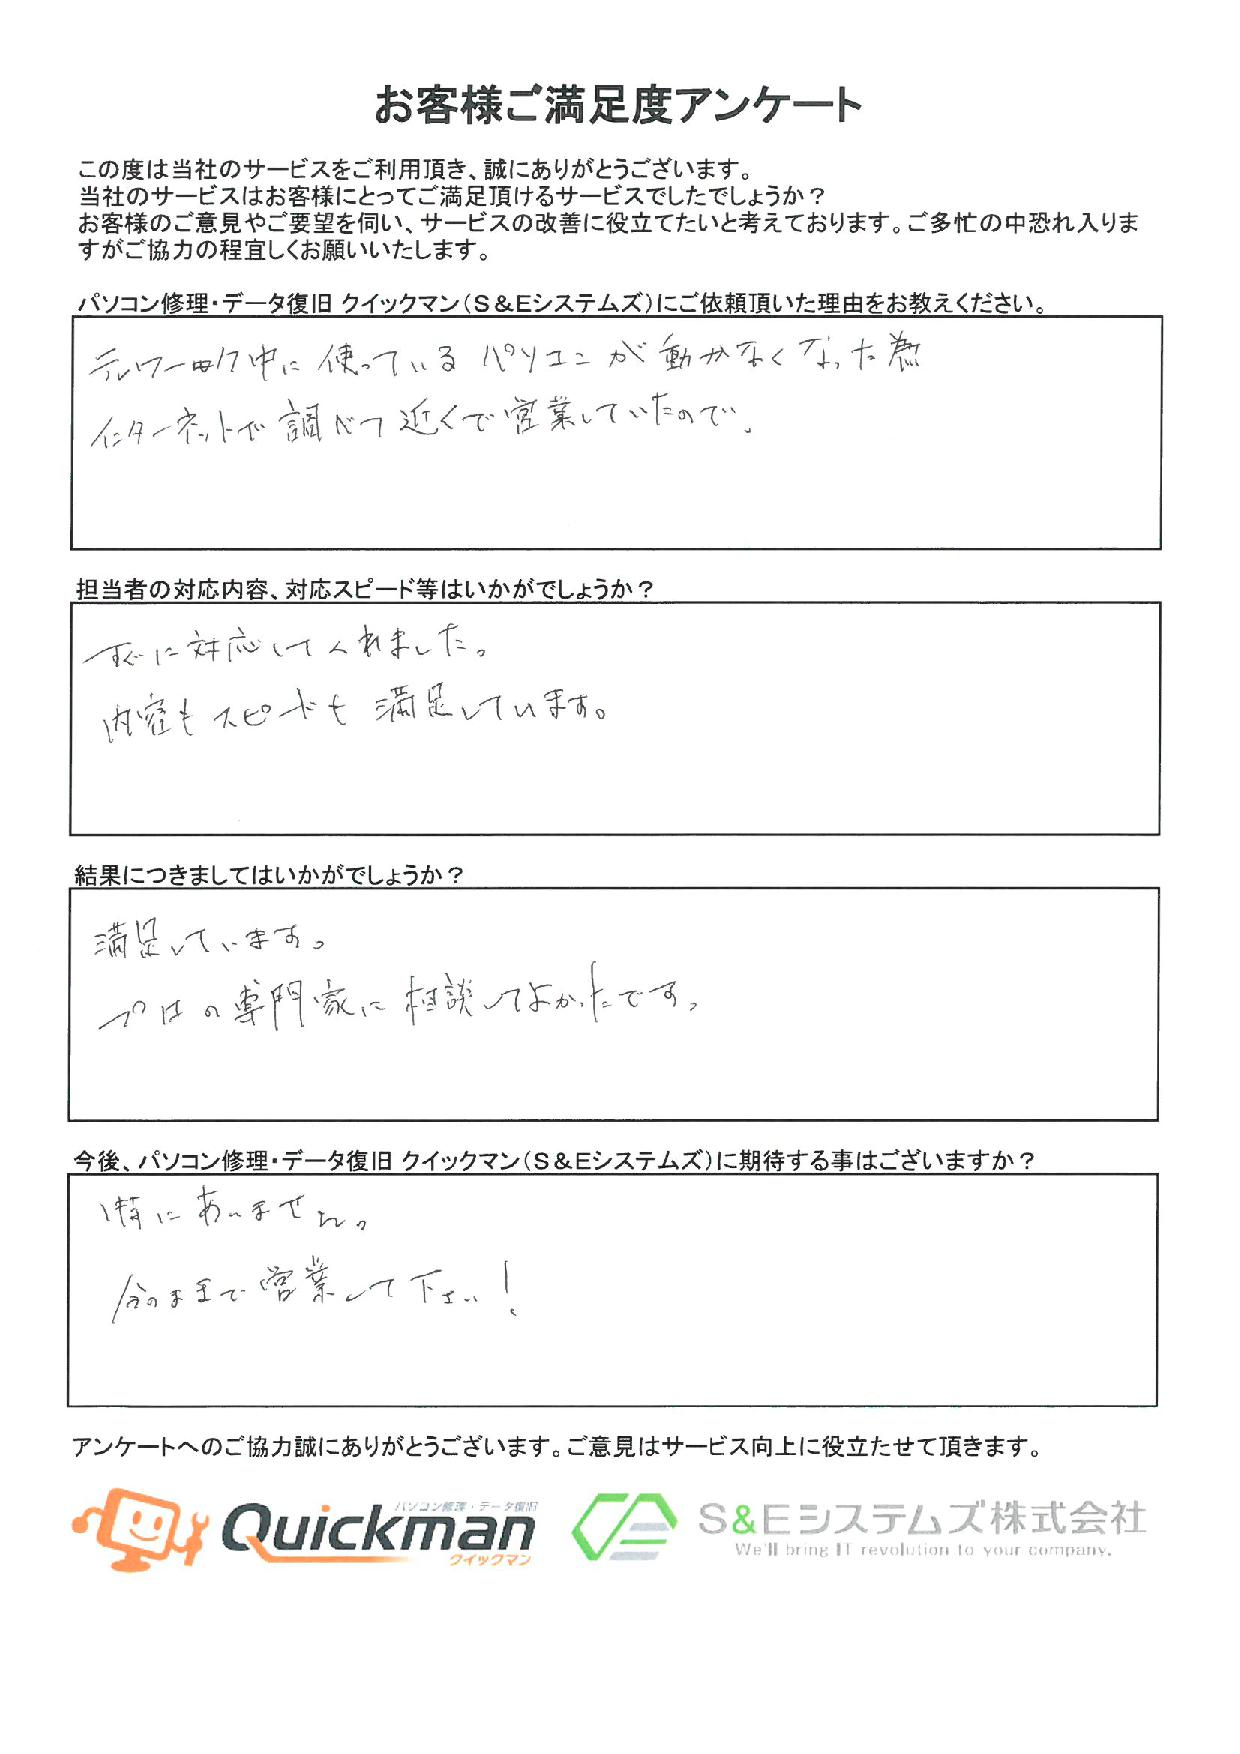 お客様ご満足度アンケート
この度は当社のサービスをご利用頂き、誠にありがとうございます。
当社のサービスはお客様にとってご満足頂けるサービスでしたでしょうか？
お客様のご意見やご要望を伺い、サービスの改善に役立てたいと考えております。ご多忙の中恐れ入りま
すがご協力の程宜しくお願いいたします。
パソコン修理・データ復旧 クイックマン（Ｓ＆Ｅシステムズ）にご依頼頂いた理由をお教えください。
テレワーク中に使っているパソコンが動かなくなった為
インターネットで調べて近くで営業していたので。
担当者の対応内容、対応スピード等はいかがでしょうか？
すぐに対応してくれました。
内容もスピードも満足しています。
結果につきましてはいかがでしょうか？
満足しています。
プロの専門家に相談してよかったです。
今後、パソコン修理・データ復旧 クイックマン（Ｓ＆Ｅシステムズ）に期待する事はございますか？
特にありません。
今のままで営業して下さい！
アンケートへのご協力誠にありがとうございます。ご意見はサービス向上に役立たせて頂きます。
パソコン修理・データ復旧
Quickman
クイックマン
S&Eシステムズ株式会社
We'll bring IT revolution to your company.